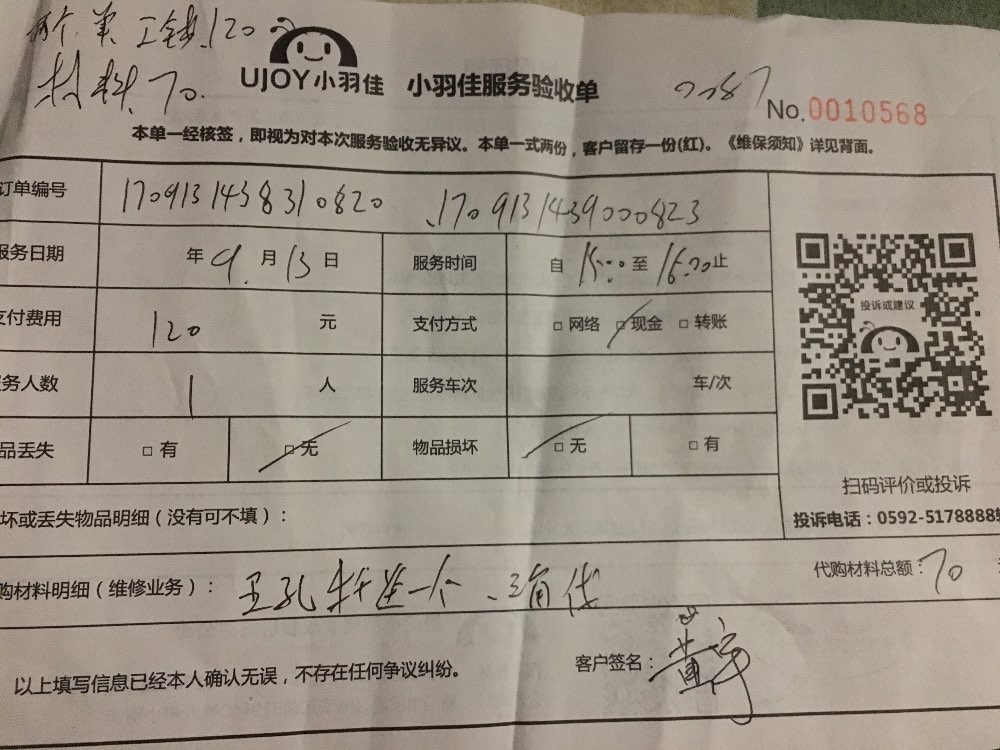 两个单 工钱120
材料 70.
UJOY小羽佳 小羽佳服务验收单
No.0010568
本单一经核签，即视为对本次服务验收无异议。本单一式两份，客户留存一份(红)。《维保须知》详见背面。
订单编号 1709131438310820 、1709131439000823
服务日期 年 9 月 13 日 服务时间 自 15:00 至 16:00 止
支付费用 120 元 支付方式 网络 现金 转账
务人数 1 人 服务车次 车/次
品丢失 有 无 物品损坏 无 有
投诉或建议
扫码评价或投诉
投诉电话：0592-5178888转
坏或丢失物品明细（没有可不填）：
购材料明细（维修业务）： 五孔 一个 、三角
代购材料总额：70
以上填写信息已经本人确认无误，不存在任何争议纠纷。
客户签名：黄